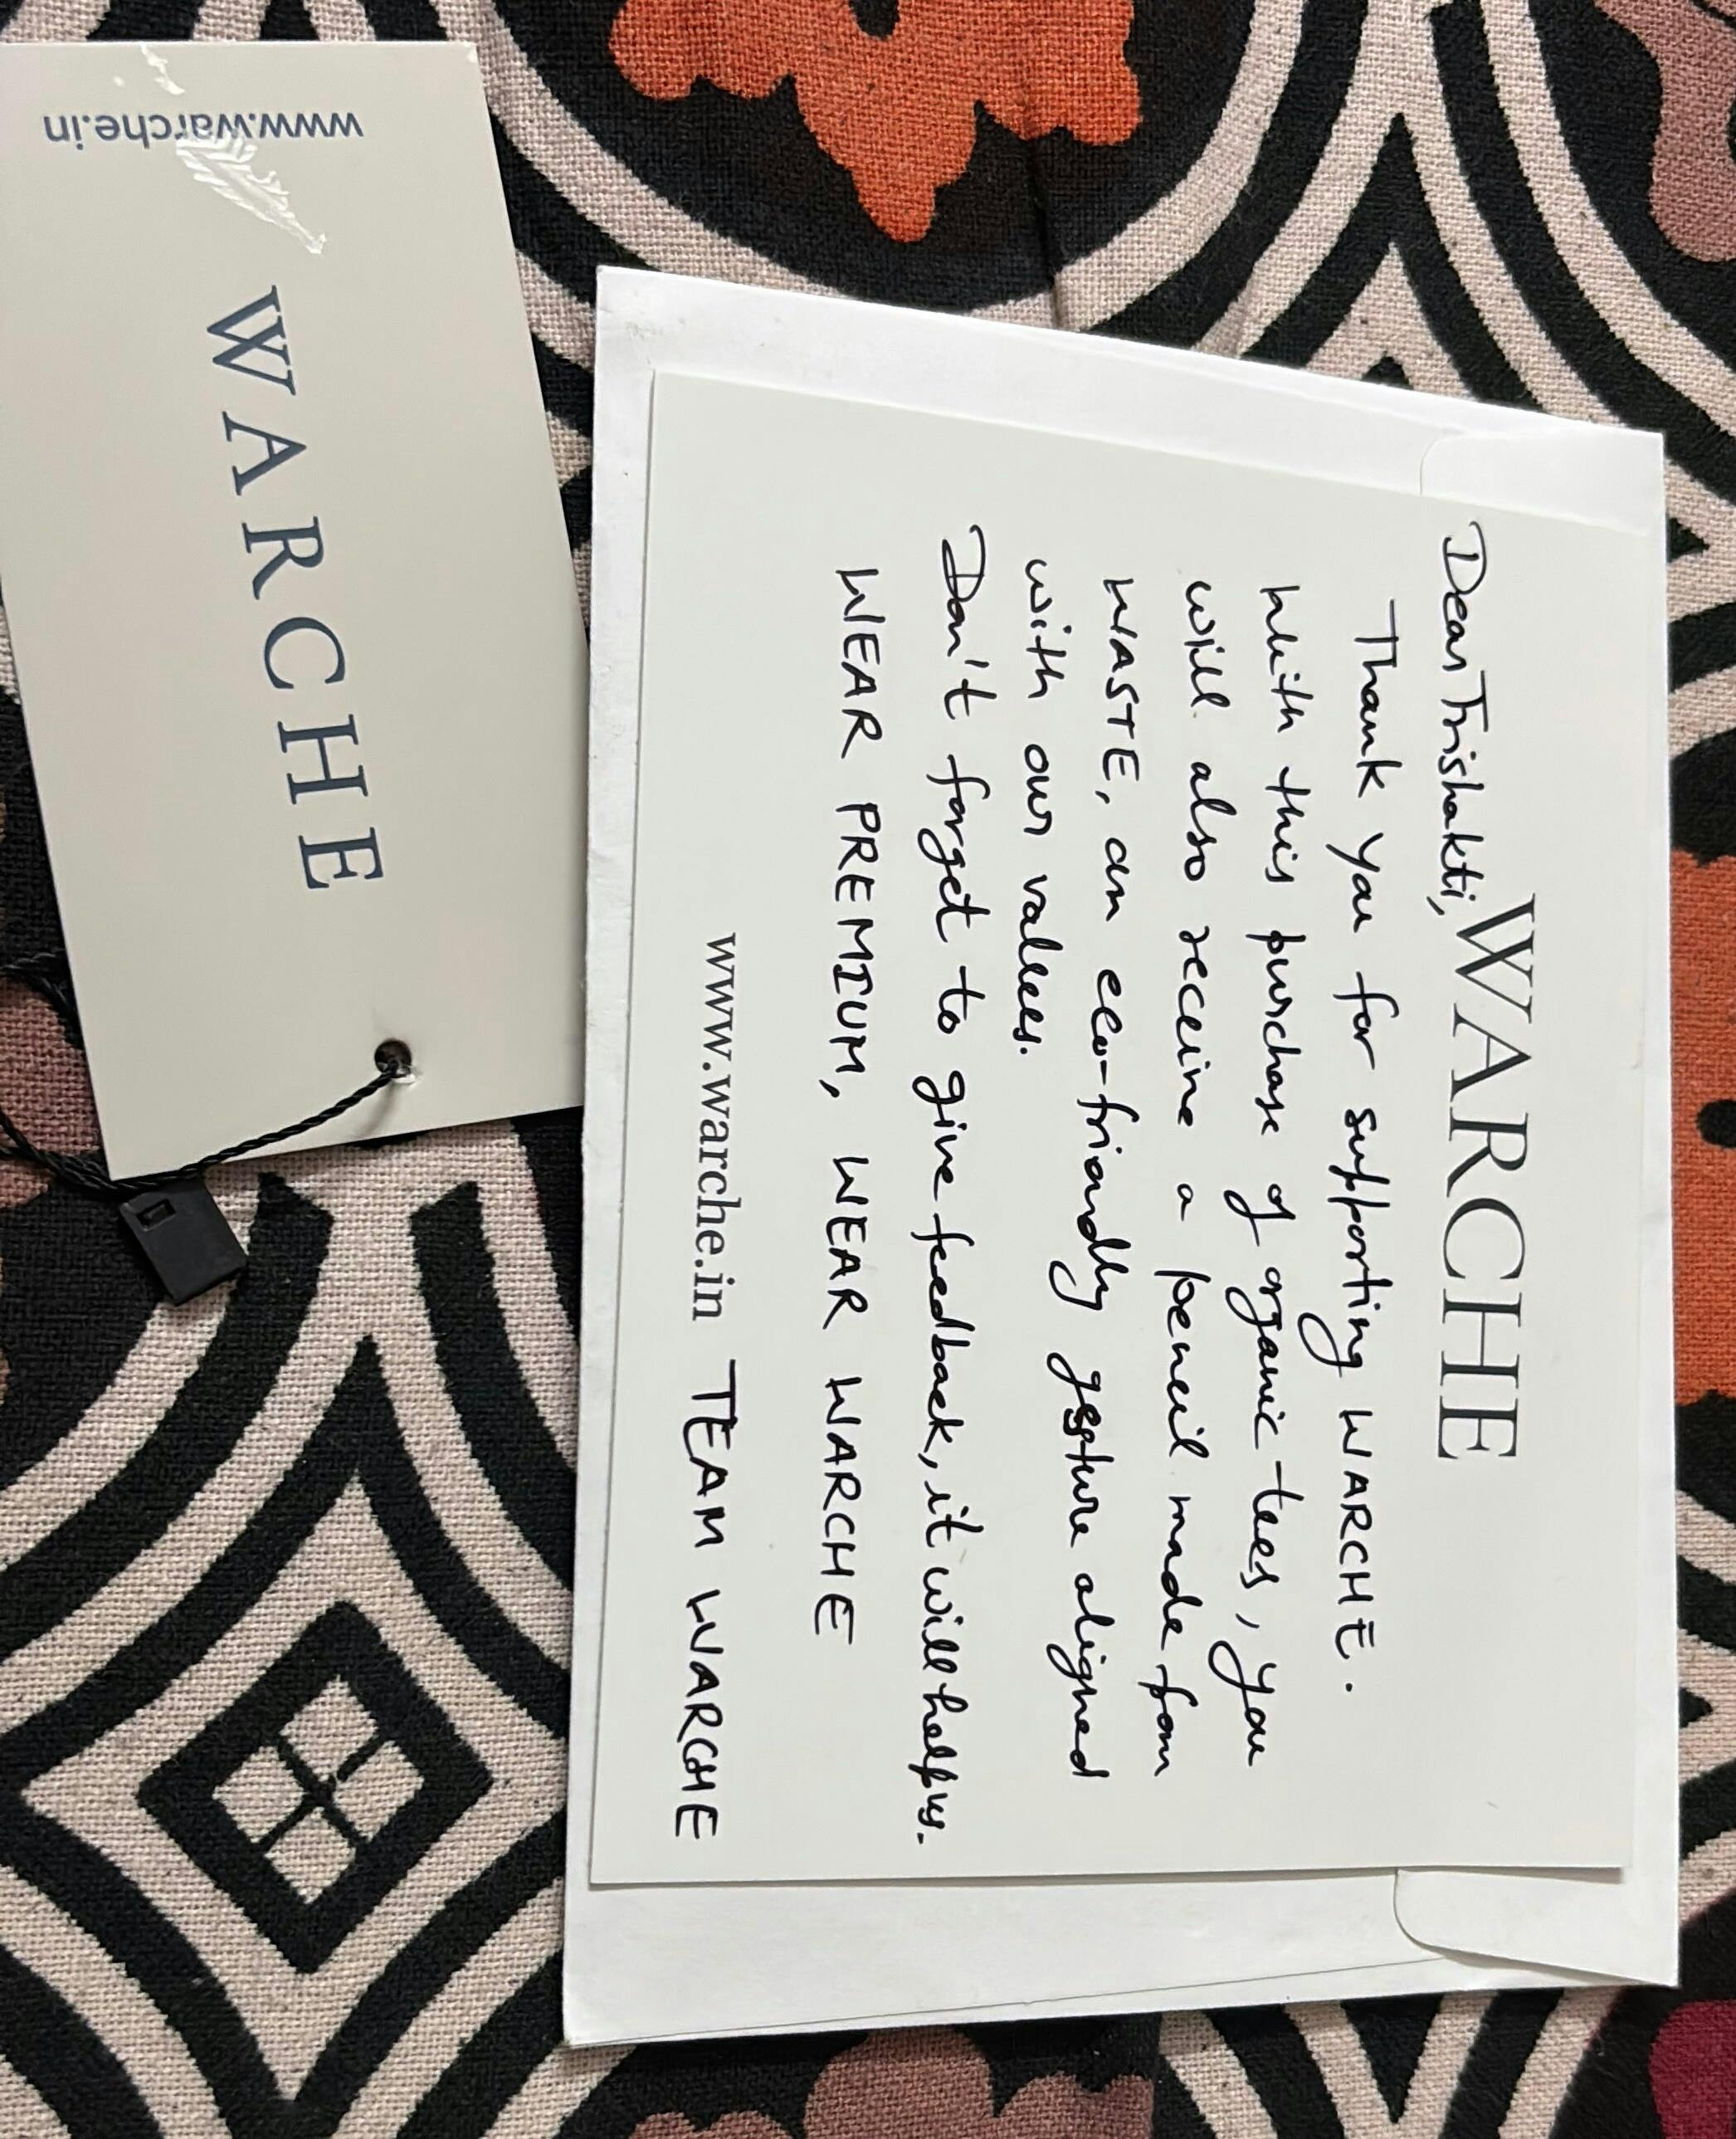 WARCHE
Dear Trishakti,
Thank you for supporting WARCHE.
With this purchase of organic tees, you
will also receive a pencil made from
WASTE, an eco-friendly gesture aligned
with our values.
Don't forget to give feedback, it will help us.
WEAR PREMIUM, WEAR WARCHE
www.warche.in TEAM WARCHE
WARCHE
www.warche.in